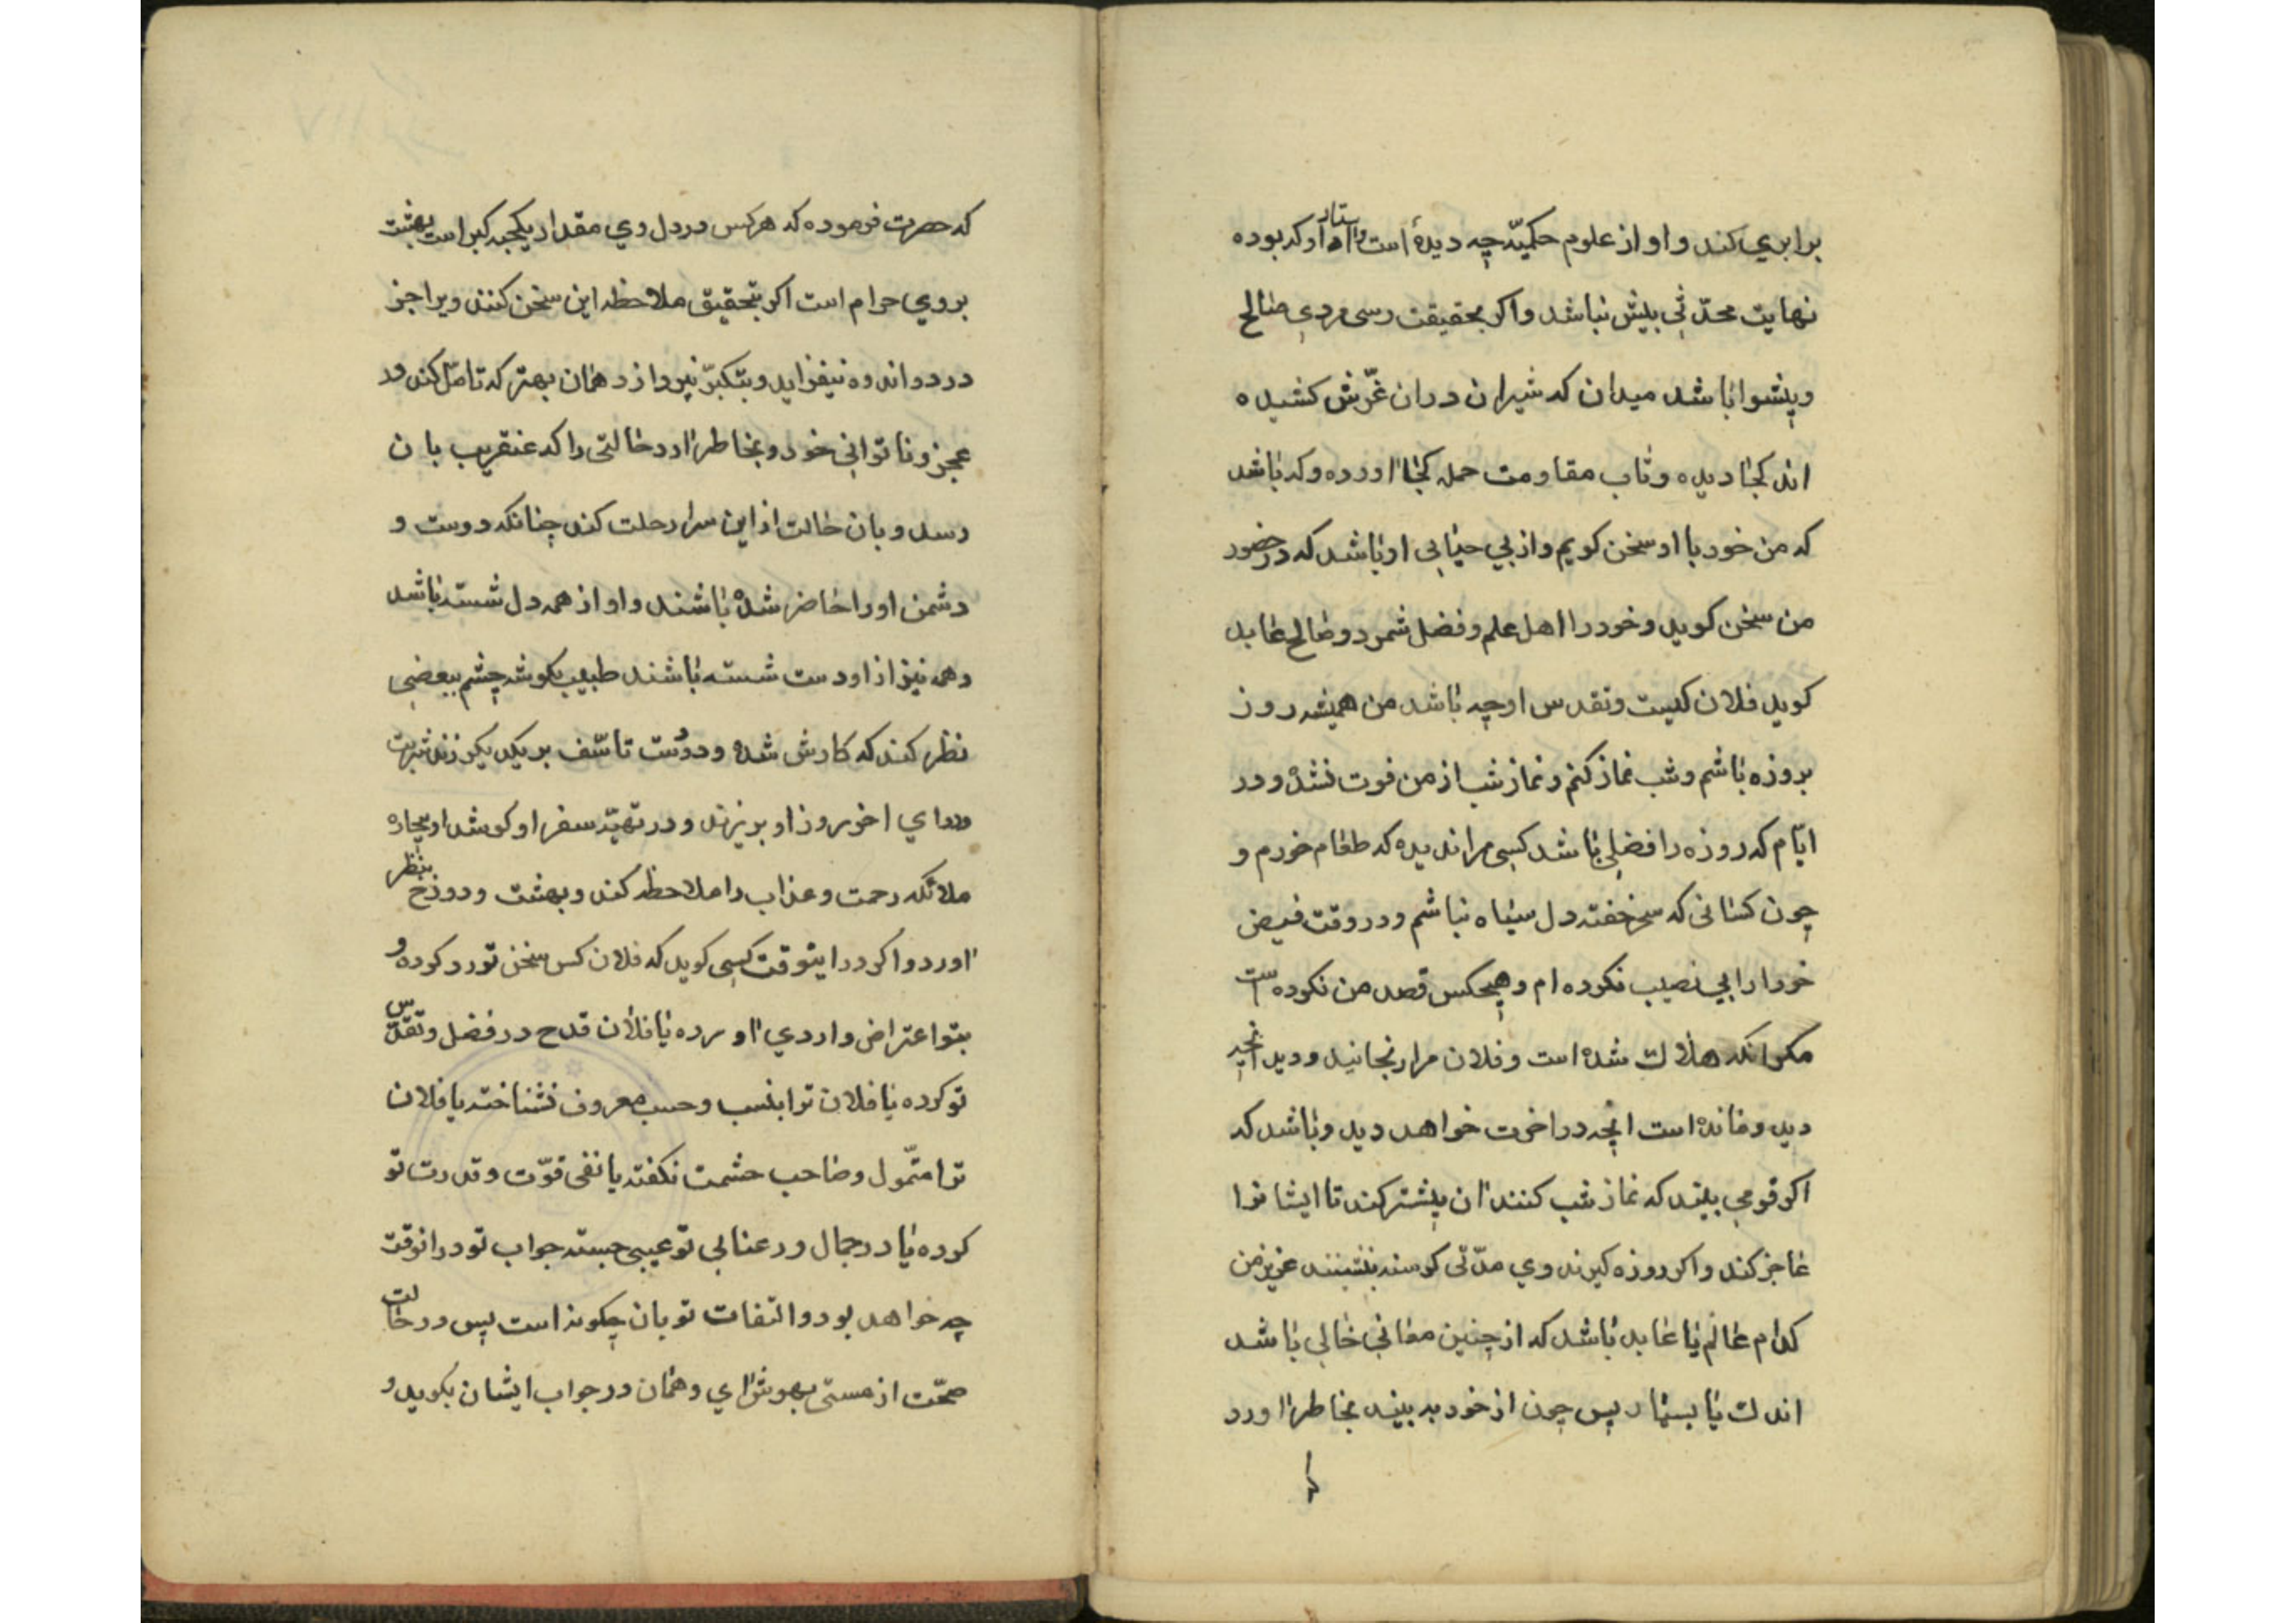 برابري کند و او از علوم حکمیّه چه دیدۀ است و استاد او که بوده
نهایت محدّثی بیش نباشد و اکر بحقیقت رسی مردی صالح
و پیشوا باشد میدان که شیران دران غرّش کشیده
اند کجا دیده و تاب مقاومت حمله کجا آورده و که باشد
که من خود با او سخن کویم و از بی حیایی او باشد که در حضور
من سخن کوید و خود را اهل علم و فضل شمرد و صالح عابد
کوید فلان کیست و تقدس او چه باشد من همیشه روز
بروزه باشم و شب نماز کنم و نماز شب از من فوت نشده و در
ایّام که روزه را فضلی باشد کسی مرا ندیده که طعام خورم و
چون کسانی که سحر خفته دل سیاه نباشم و در وقت فیض
خود را بی نصیب نکرده ام و هیچکس قصد من نکرده است
مکر انکه هلاک شده است و فلان مرا رنجانید و دید آنچه
دید و مانده است انچه در اخرت خواهد دید و باشد که
اکر قومی بیند که نماز شب کنند آن پیشتر کند تا ایشانرا
عاجز کند و اکر روزه کیرند وی مدّتی کرسنه بنشیند عزیز من
کدام عالم یا عابد باشد که از چنین معانی خالی باشد
اندک یا بسیار پس چون از خود به بیند بخاطر آورد
که
که حضرت فرموده که هرکس در دل وي مقدار یکحبه کبر است بهشت
بر وي حرام است اکر بتحقیق ملاحظه این سخن کنند ویرا جز
درد و اندوه نیفزاید و بتکبرّ نپردازد همان بهتر که تامّل کند در
عجز و ناتوانی خود و بخاطر آورد حالتی را که عنقریب بان
رسد و بان حالت از این سرا رحلت کند چنانکه دوست و
دشمن او را حاضر شده باشند و او از همه دل شسته باشد
و همه نیز از او دست شسته باشند طبیب بکوشه چشم ببعضی
نظر کند که کارش شده و دوست تاسّف بر یکدیکر زند شربت
دواي اخر روز او بریزند و در تهیّه سفر او کوشد او بیچاره
ملائکه رحمت و عذاب را ملاحظه کند و بهشت و دوزخ بنظر
آورد و اکر در اینوقت کسی کوید که فلان کس سخن تو رد کرده و
بتو اعتراض واردي آورده یا فلان قدح در فضل و تقدّس
تو کرده یا فلان ترا بنسب و حسب معروف نشناخته یا فلان
ترا متّمول و صاحب حشمت نکفته یا نفی قوّت و قدرت تو
کرده یا در جمال و رعنایی تو عیبی جسته جواب تو در انوقت
چه خواهد بود و التفات تو بان چکونه است پس در حالت
صحّت از مستی بهوش آي و همان در جواب ایشان بکوید و